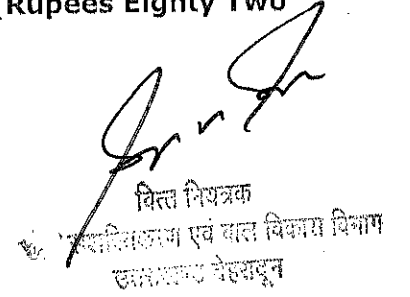 Rupees Eighty Two
वित्त नियंत्रक
एवं बाल विकास विभाग
उत्तराखण्ड देहरादून